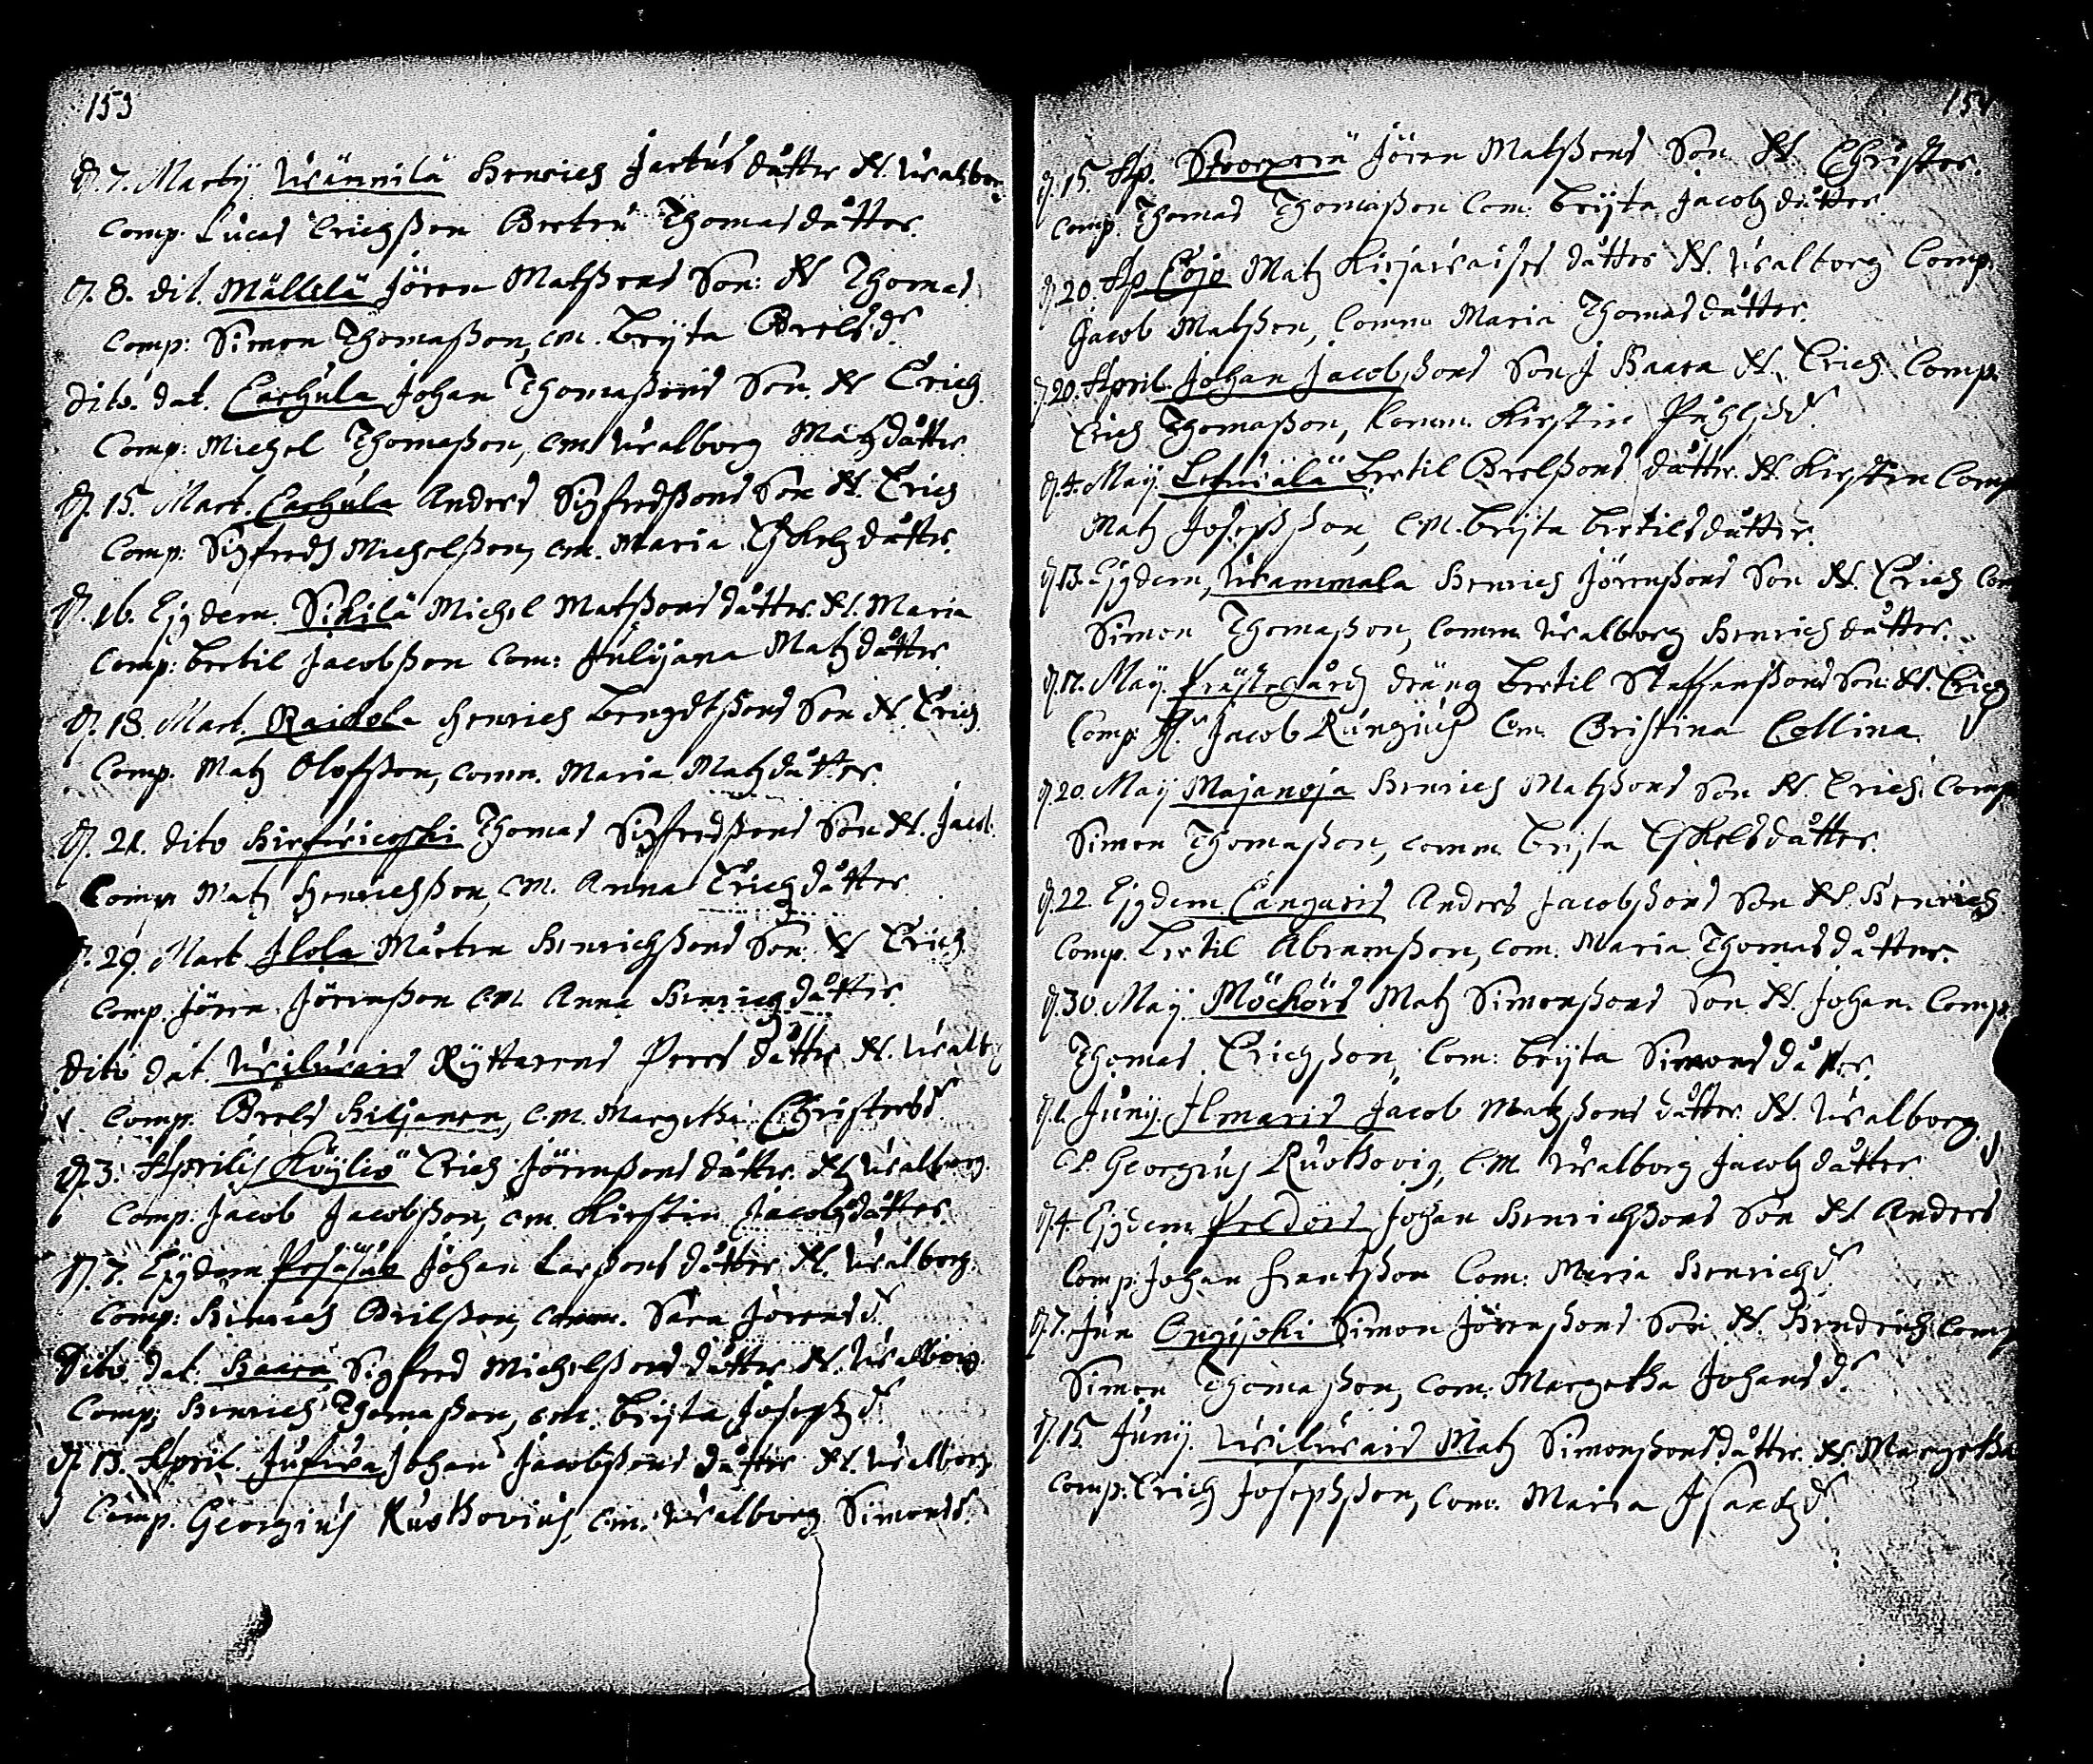 153
D. 7. Martij Wännilä Henrich Jartus dåtter N. Walbor
Comp. Lucas Erichsson Bertru Thomasdåtter.
D. 8. dit. Mällilä Jören Matssons Son: N Thomas
Comp: Simon Thomasson, cm. Brijta Brelsd.
Dito. dat. Carhula Johan Thomassons Son. N Erich
Comp: Michel Thomasson, cm Walborg Matzdåtter.
D. 15. Mart. Carhula Anders Sigfredssons Son N. Erich
Comp: Sigfredh Michelsson, cm. Maria Eskelsdåtter.
D. 16. Ejusdem. Sikilä Michel Matssons dåtter. N. Maria
Comp: Bertil Jacobsson Com: Julijana Matzdåtter.
D. 18. Mart. Raikola Henrich Bengdtssons Son N. Erich.
Comp. Matz Olofsson, comm. Maria Matzdåtter.
D. 21. dito Hirfwicoski Thomas Sigfredssons Son N. Jacob.
Comp Matz Henrichsson, cm. Anna Erichzdåtter.
D. 29. Mart Ilola Mårten Henrichssons Son. N Erich.
Comp. Jören Jörensson C.M. Anna Henrichzdåtter.
Dito dat. Wilwais Ryttarens Pers dåtter N. Walb
Comp. Brels Hiljanen, C.M. Margetha Christersd.
D. 3. Aprilis Köyliö Erich Jörenssons dåtter. N. Walborg.
Comp. Jacob Jacobsson, cm. Kirstin Jacobsdåtter.
D. 7. Ejusdem Johan Larssons dåtter N. Walborg.
Comp: Henrich Brilsson, comm. Sara Jörensd.
Dito. dat. Haara Sigfred Michelssons dåtter N. Walborg.
Comp; Henrich Thomasson, cm. Brijta Josephzd.
D. 13. April. Jufwa Johan Jacobssons dåtter N. Walborg
Comp. Georgius Ruothovius, c.m. Walborg Simonsd.
154
D. 15. Ap. Jören Matssons Son N. Christer.
Comp. Thomas Thomasson Com: Brijta Jacobzdåtter.
D. 20. Ap Cojo Matz Kirjawaises dåtter N. Walborg Comp.
Jacob Matsson, Comm Maria Thomasdåtter.
D. 20. April. Johan Jacobssons Son J Haara N. Erich Comp.
Erich Thomasson, Comm. Kirstin d.
D. 4. Maij Bertil Brelssons dåtter. N. Kirstin Comp
Matz Josephsson, C.M. Brijta Bertilsdåtter.
D. 13. Ejusdem, Wammala Henrich Jörenssons Son N. Erich Com
Simon Thomasson, Comm Walborg Henrichdåtter.
D. 17. Maij Prästegårdz dräng Bertil Staffanssons Son. N. Erich
Comp: H. Jacob Rungius Cm. Christina Collina.
D. 20. Maij Majanoja Henrich Matssons Son N. Erich. Comp
Simon Thomasson, comm. Brijta Eskelsdåtter.
D. 22. Ejusdem Cangaris Anders Jacobssons Son N. Henrich
Comp. Bertil Abramsson, com. Maria Thomasdåtter.
D. 30. Maij. Möckörs Matz Simonssons Son N. Johan. Comp.
Thomas Erichsson, Com: Brijta Simonsdåtter.
D. 1. Junij. Ilmaris Jacob Matzssons dåtter N. Walborg.
C.P. Georgius Ruothovig, C.M. Walborg Jacobzdåtter
D. 4 Ejusdem Peldois Johan Henrichssons Son N Anders
Comp: Johan Frantsson Com: Maria Henrichzd.
D. 7. Jun Ongijoki Simon Jörenssons Son N. Hendrich. Comp
Simon Thomasson, com. Margetha Johansd.
D. 15. Junij. Wilwais Matz Simonssons dåtter. N. Margetha
Comp: Erich Josephsson, Com. Maria Isaachzd.